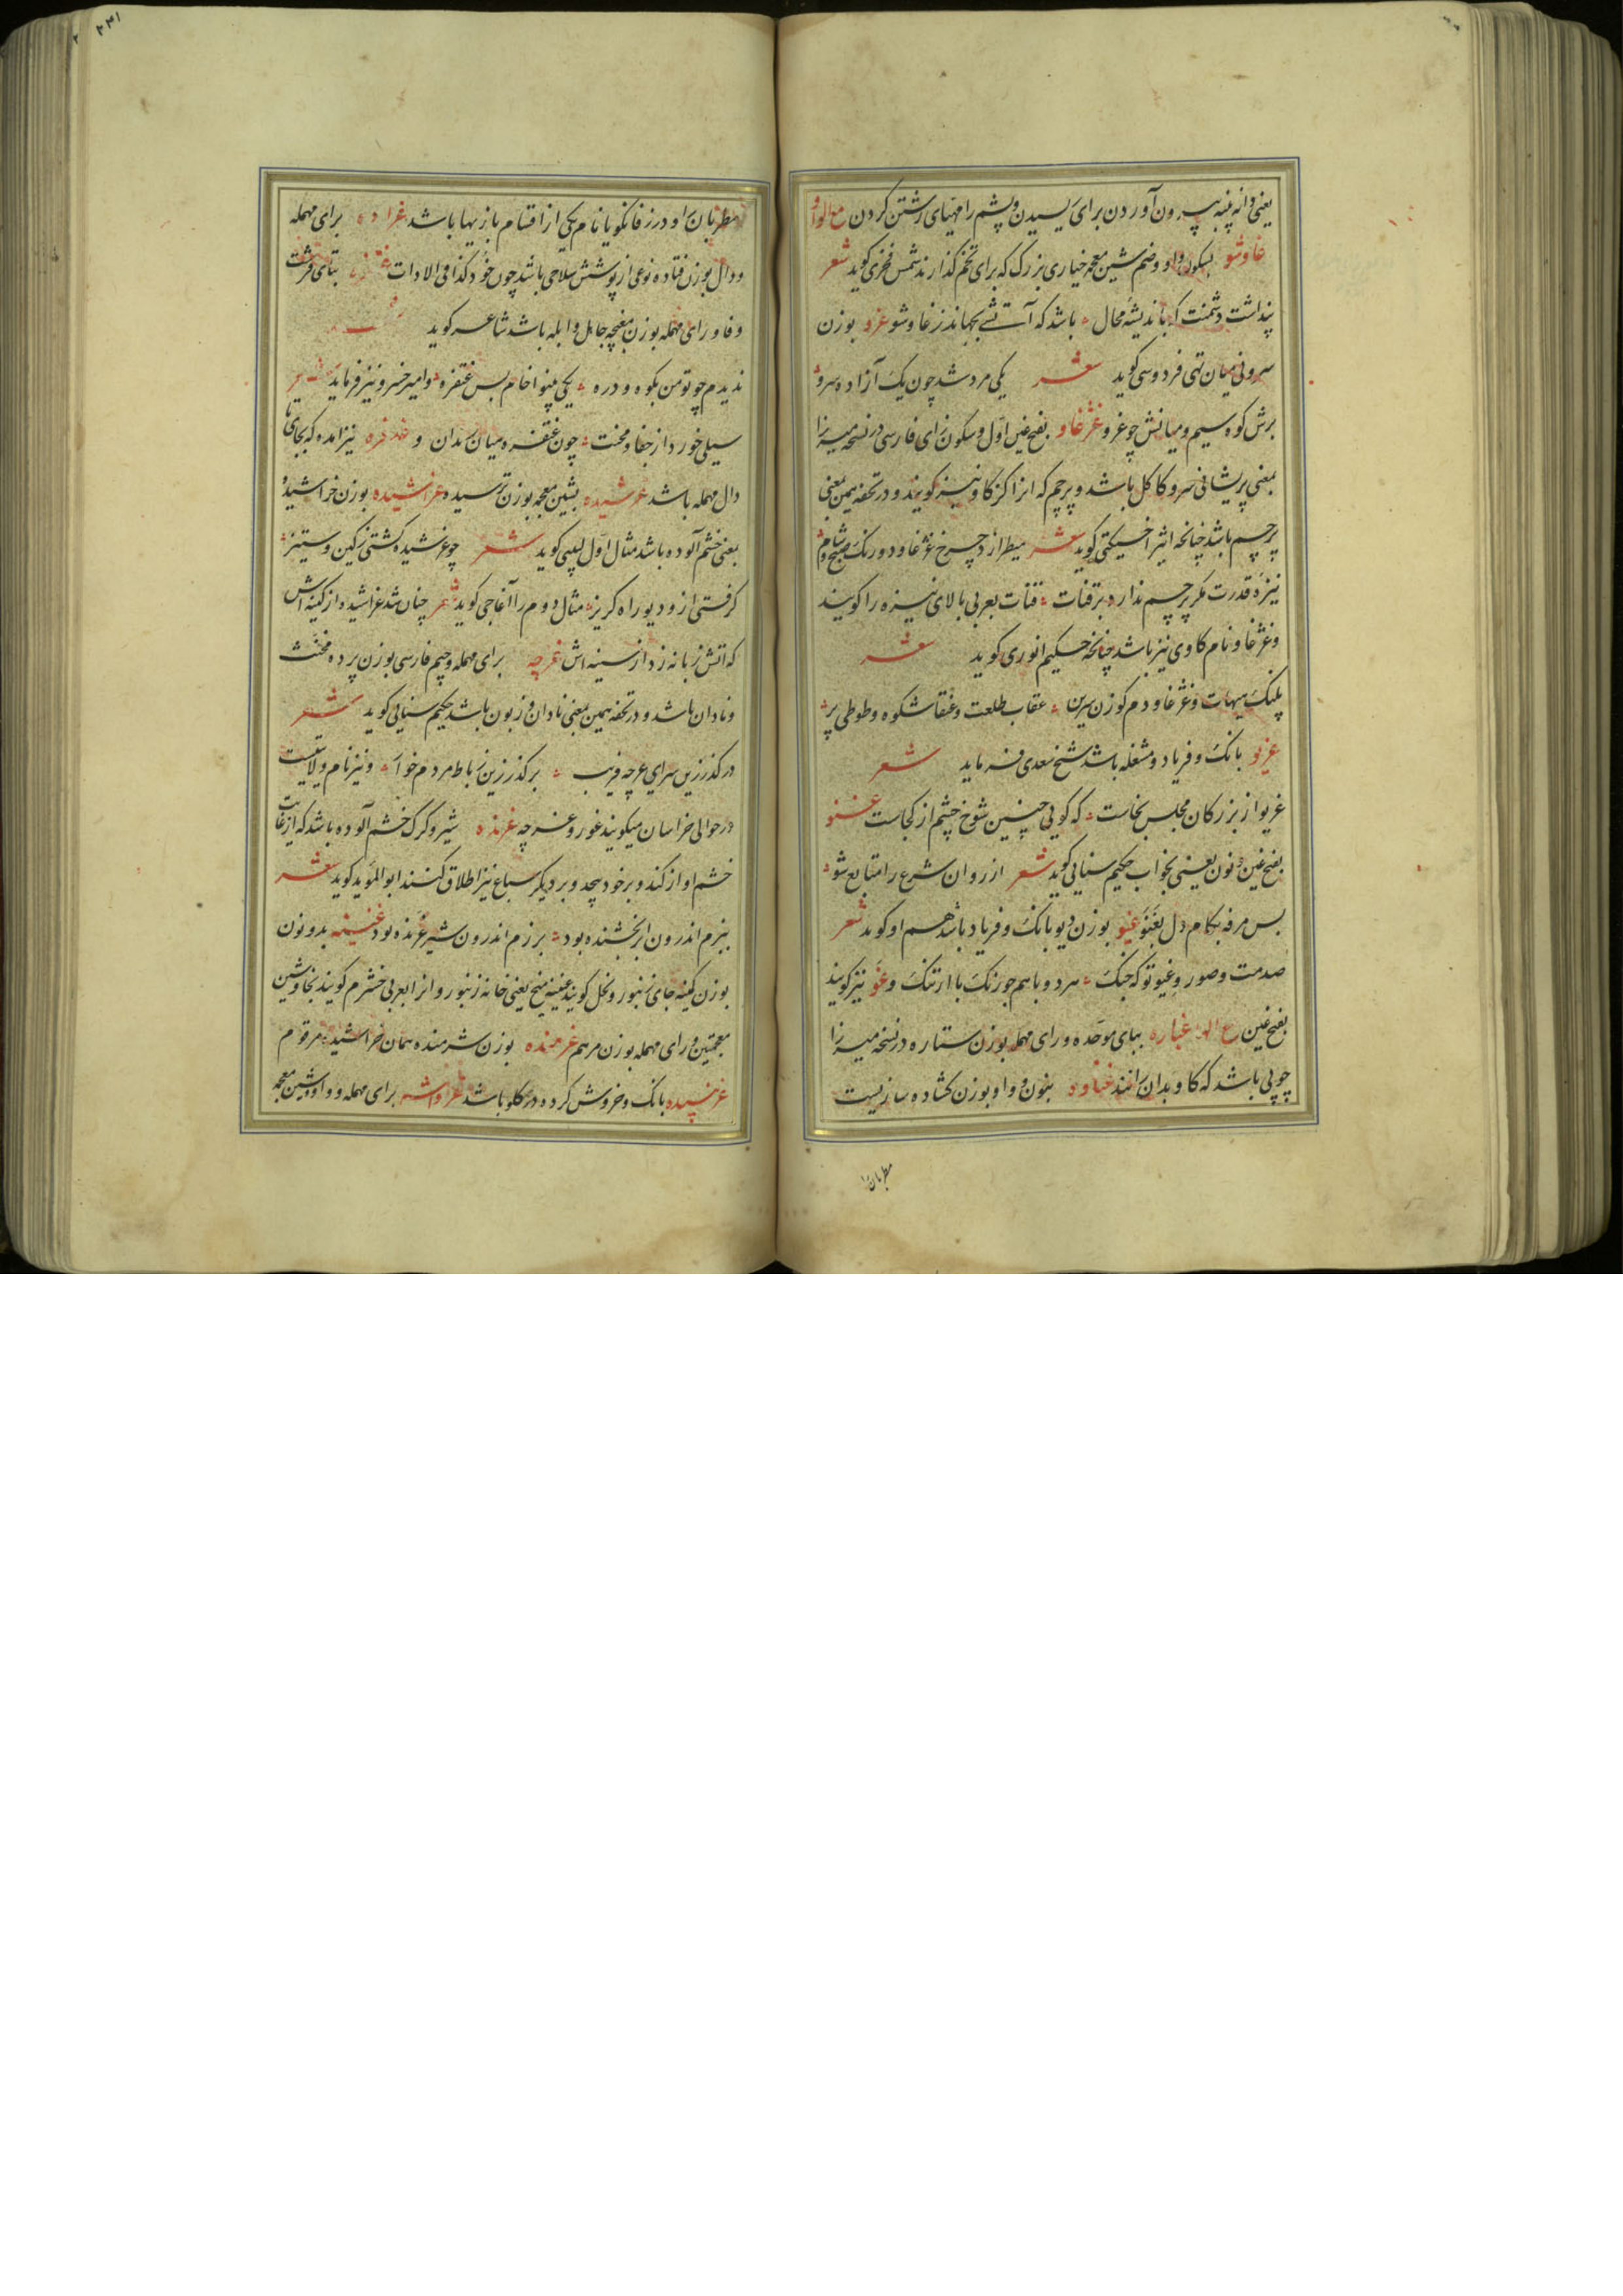 یعنی دانه پنبه بیرون آوردن برای ریسیدن و پشم را مهیای رشتن کردن مع الواو
غاوشو بسکون واو و ضم شین معجمه خیاری بزرک که برای تخم کذارند شمس فخری کوید شعر
پنداشت دشمنت که باندیشه محال باشد که آتشی بجهاند ز غاوشو غرو بوزن
سرو نی میان تهی فردوسی کوید شعر یکی مرد شد چون یک آزاده سرو
برش کوه سیم و میانش چو غرو غژغاو بفتح غین اول و سکون زای فارسی در نسخه میرزا
بمعنی پریشانی سر و کاکل باشد و پرچم که انرا کژکاو نیز کویند و در تحفه بهمین معنی
پرچم باشد چنانچه اثیر اخسیکتی کوید شعر میطرازد چرخ غژغاو دو رنک صبح و شام
نیزه قدرت مکر پرچم ندارد بر قنات قنات بعربی بالای نیزه را کویند
و غژغاو نام کاوی نیز باشد چنانچه حکیم انوری کوید شعر
پلنک هیبات و غژغاو دم کوزن سرین عقاب طلعت و عنقا شکوه و طوطی پر
غریو بانک و فریاد و مشغله باشد شیخ سعدی فرماید شعر
غریو از بزرکان مجلس بخاست که کویی چنین شوخ چشم از کجاست غنو
بفتح غین و نون یعنی بخواب حکیم سنایی کوید شعر از روان شرع را متابع شو
بس مرفه بکام دل بغنو غیو بوزن دیو بانک و فریاد باشد هم او کوید شعر
صدمت و صور و غیو تو که جنک هر دو با هم چو زنک با ارتنک و غو نیز کویند
بفتح غین مع الهاء غباره ببای موحده و رای مهمله بوزن ستاره در نسخه میرزا
چوبی باشد که کاو بدان رانند غناوه بنون و واو بوزن کشاده سازیست
مطربان
مطربان را و در زفانکویا نام یکی از اقسام بازیها باشد غراده برای مهمله
و دال بوزن فتاده نوعی از پوشش سلاحی باشد چون خود کذا فی الادات غتفره بتای قرشت
و فا و رای مهمله بوزن مغچه جاهل و ابله باشد شاعر کوید شعر
ندیدم چو تو من بکوه و دره یکی بینوا خام بس غتفره و امیر خسرو نیز فرماید شعر
سیلی خورد از جفا و محنت چون غتفره میان رندان و غدفره نیز امده که بجای تا
دال مهمله باشد غرشیده بشین معجمه بوزن ترسیده و غراشیده بوزن خراشیده
یعنی خشم آلوده باشد مثال اول لبیبی کوید شعر چو غرشیده کشتی ز کین و ستیز
کرفتی از و دیو راه کریز مثال دوم را آغاجی کوید شعر چنان شد غراشیده از کینه اش
که اتش زبانه زد از سینه اش غرچه برای مهمله و جیم فارسی بوزن پرده مخنث
و نادان باشد و در تحفه بهمین معنی نادان و زبون باشد حکیم سنایی کوید شعر
در کذر زین سرای غرچه فریب بر کذر زین رباط مردم خوار و نیز نام ولایتیست
در حوالی خراسان میکویند غور و غرچه غرنده شیر و کرک خشم آلوده باشد که از غایت
خشم اواز کند و بر خود پیچد و بر دیکر سباع نیز اطلاق کنند ابو المؤید کوید شعر
ببزم اندرون ابر بخشنده بود برزم اندرون شیر غرنده بود غنینه بدو نون
بوزن کینه جای زنبور و نحل کویند غنینه منج یعنی خانه زنبور و انرا بعربی خشرم کویند بخا و شین
معجمتین و رای مهمله بوزن مرهم غرمنده بوزن شرمنده همان غراشیده مرقوم
غرنبیده بانک و خروش کرده و در کلو باشد غراوشه برای مهمله و واو و شین معجمه